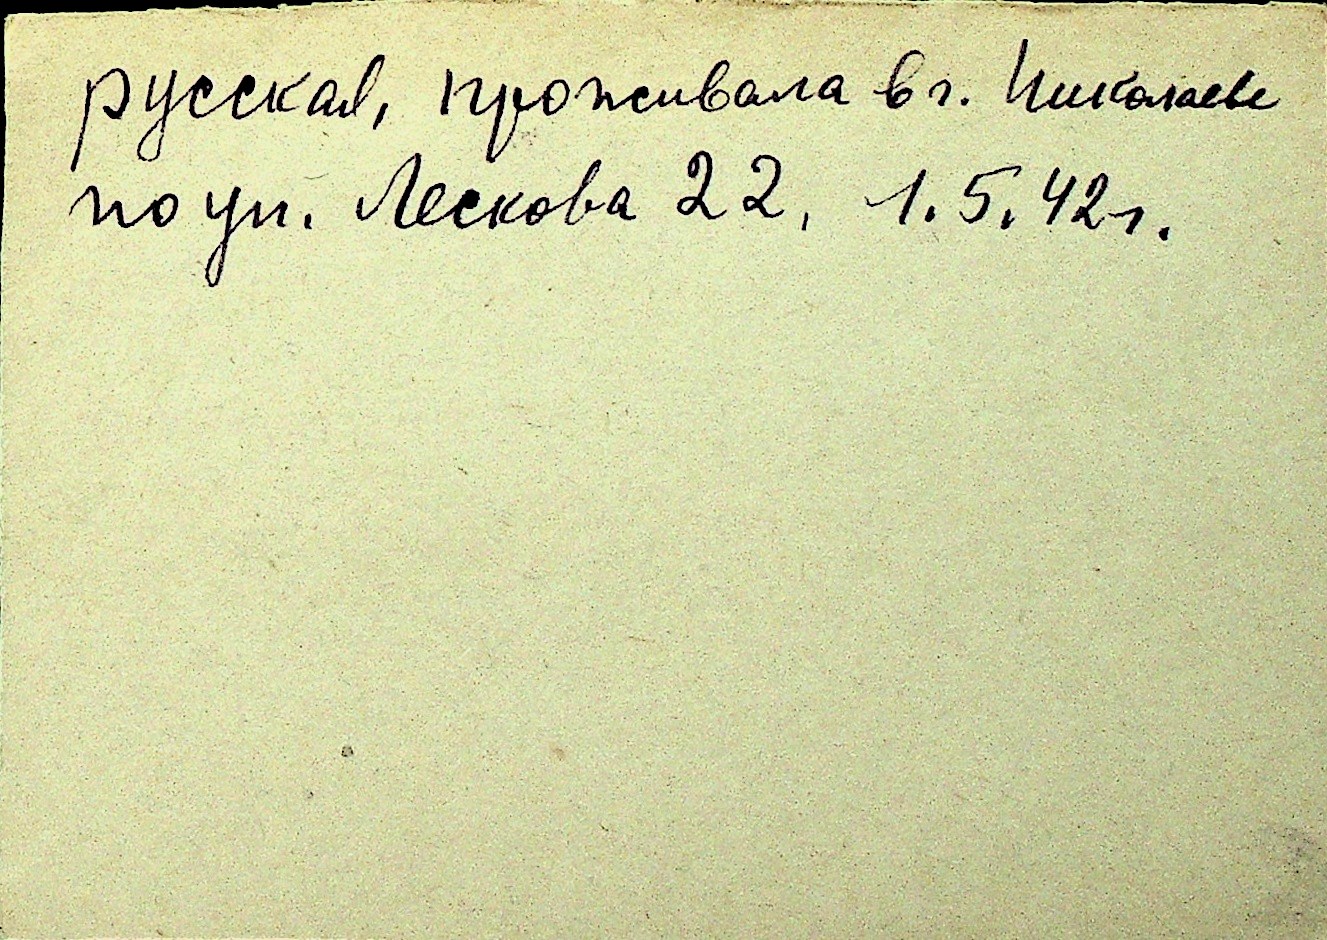 русская, проживала в г. Николаеве
по ул. Лескова 22, 1.5.42г.